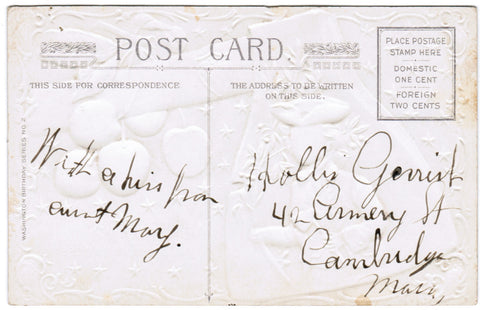 POST CARD.
THIS SIDE FOR CORRESPONDENCE
THE ADDRESS TO BE WRITTEN
ON THIS SIDE.
PLACE POSTAGE
STAMP HERE
DOMESTIC
ONE CENT
FOREIGN
TWO CENTS
WASHINGTON BIRTHDAY SERIES NO. 2
With a kiss from
aunt Mary.
Hollis Gerrish
42 Armery St
Cambridge
Mass,